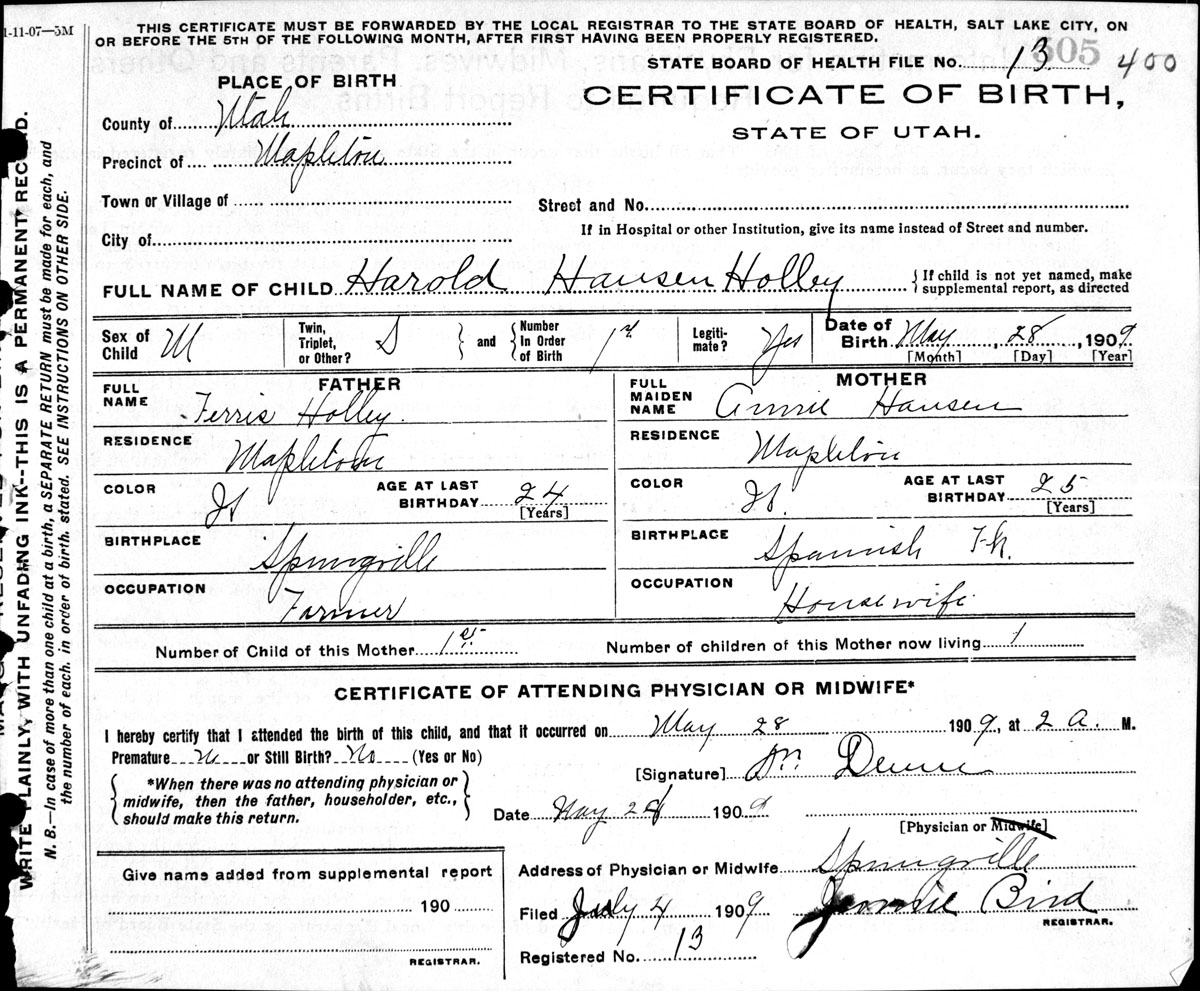 1-11-07—5M
THIS CERTIFICATE MUST BE FORWARDED BY THE LOCAL REGISTRAR TO THE STATE BOARD OF HEALTH, SALT LAKE CITY, ON
OR BEFORE THE 5TH OF THE FOLLOWING MONTH, AFTER FIRST HAVING BEEN PROPERLY REGISTERED.
STATE BOARD OF HEALTH FILE No. 13 505 400
PLACE OF BIRTH
CERTIFICATE OF BIRTH,
STATE OF UTAH.
County of Utah
Precinct of Mapleton
Town or Village of
Street and No.
City of
If in Hospital or other Institution, give its name instead of Street and number.
FULL NAME OF CHILD Harold Hansen Holley
{If child is not yet named, make
supplemental report, as directed
Sex of Child M
Twin, Triplet, or Other? S
and
Number In Order of Birth 1st
Legiti-mate? Yes
Date of Birth May 28, 1909
[Month] [Day] [Year]
FATHER
FULL NAME Ferris Holley
RESIDENCE Mapleton
COLOR
AGE AT LAST BIRTHDAY 24
[Years]
BIRTHPLACE Springville
OCCUPATION Farmer
MOTHER
FULL MAIDEN NAME Annie Hansen
RESIDENCE Mapleton
COLOR
AGE AT LAST BIRTHDAY 25
[Years]
BIRTHPLACE Spanish Fk.
OCCUPATION Housewife
Number of Child of this Mother 1st
Number of children of this Mother now living 1
CERTIFICATE OF ATTENDING PHYSICIAN OR MIDWIFE*
I hereby certify that I attended the birth of this child, and that it occurred on May 28 1909, at 2 a. M.
Premature No or Still Birth? No (Yes or No)
*When there was no attending physician or
midwife, then the father, householder, etc.,
should make this return.
[Signature] Dr.
Date May 28 1909
[Physician or Midwife]
Address of Physician or Midwife Springville
Give name added from supplemental report
190
REGISTRAR.
Filed July 4 1909 Jennie Bird
REGISTRAR.
Registered No. 13
WRITE PLAINLY, WITH UNFADING INK--THIS IS A PERMANENT RECORD.
N. B.—In case of more than one child at a birth, a SEPARATE RETURN must be made for each, and
the number of each, in order of birth, stated. SEE INSTRUCTIONS ON OTHER SIDE.